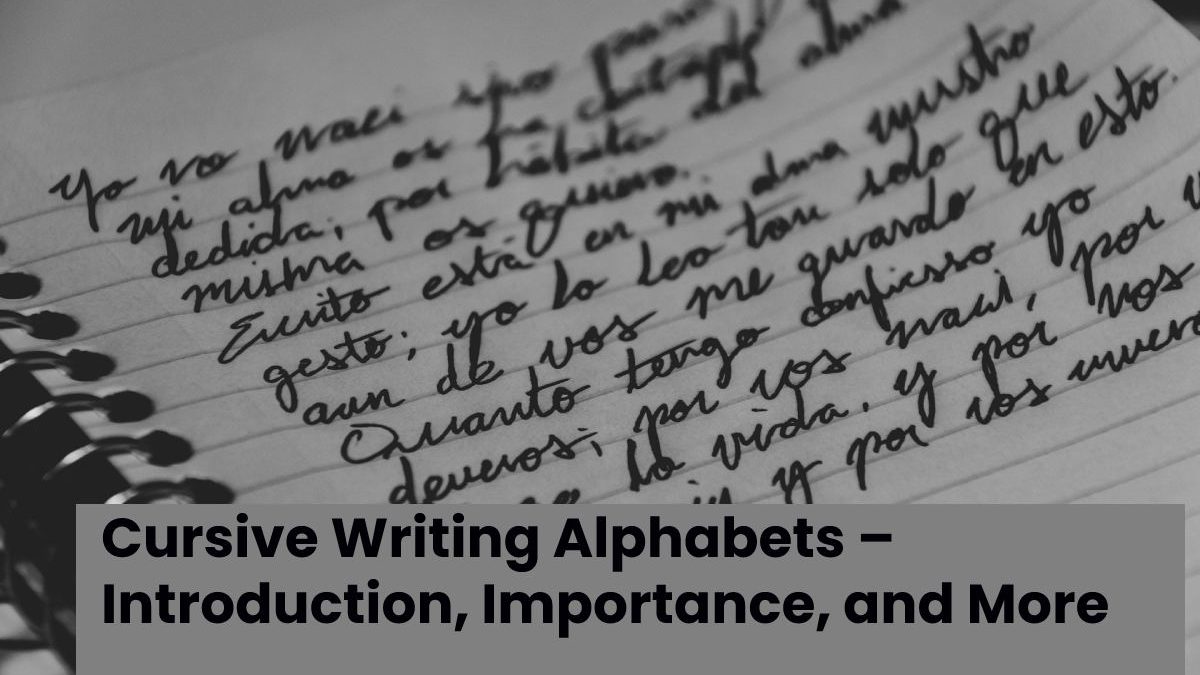 Yo no naci sino para
mi alma os ha
dedida; por hábito del alma
misma os quiero.
Escrito está en mi alma vuestro
gesto; yo lo leo tan solo que
aun de vos me guardo en esto.
Quanto tengo confiesso yo
deveros; por vos naci, por
la vida, y por vos
y por vos muero
Cursive Writing Alphabets –
Introduction, Importance, and More